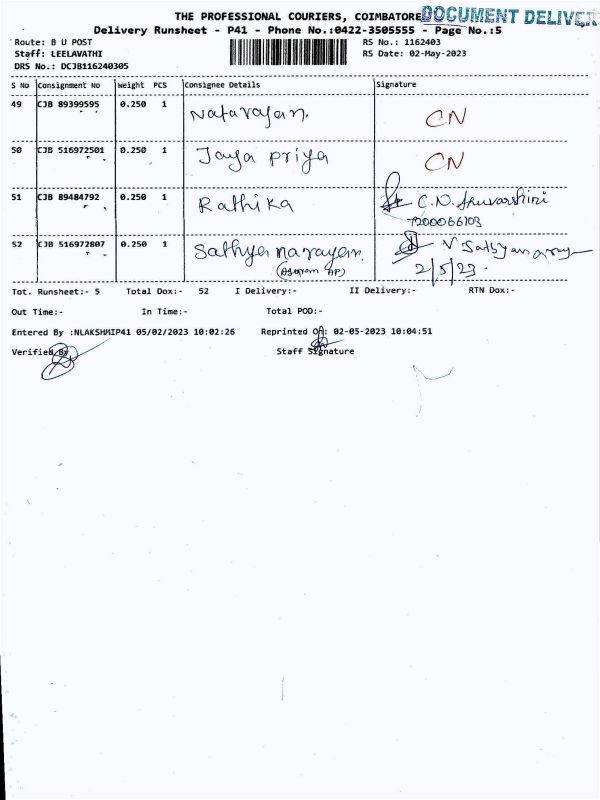 THE PROFESSIONAL COURIERS, COIMBATORE DOCUMENT DELIVER
Delivery Runsheet - P41 - Phone No.:0422-3505555 - Page No.:5
Route: B U POST RS No.: 1162403
Staff: LEELAVATHI RS Date: 02-May-2023
DRS No.: DCJB116240305
S No Consignment No Weight PCS Consignee Details Signature
49 CJB 89399595 0.250 1 Natarajan. CN
50 CJB 516972501 0.250 1 Jaya priya CN
51 CJB 89484792 0.250 1 Rathika C.N.
7200066103
52 CJB 516972807 0.250 1 Sathyanarayan. V
2/5/23.
Tot. Runsheet:- 5 Total Dox:- 52 I Delivery:- II Delivery:- RTN Dox:-
Out Time:- In Time:- Total POD:-
Entered By :NLAKSHMIP41 05/02/2023 10:02:26 Reprinted On: 02-05-2023 10:04:51
Verified By Staff Signature